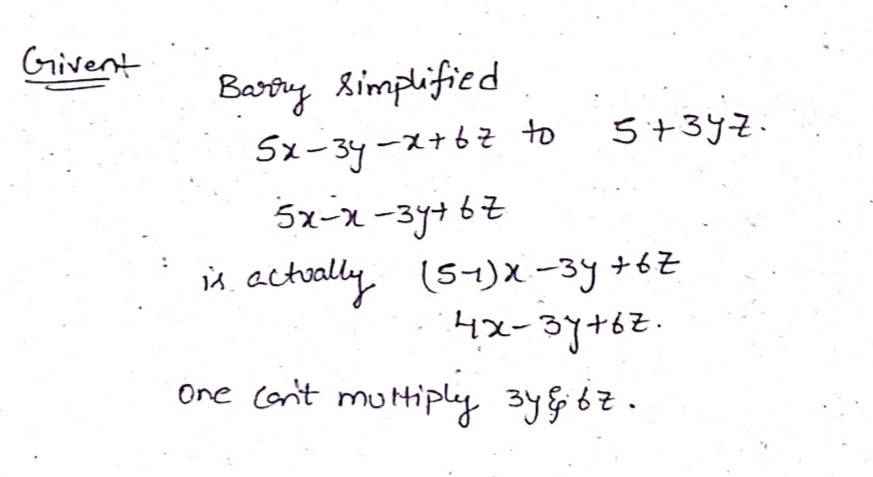 Given
Barry simplified
5x-3y-x+6z to 5+3yz.
5x-x-3y+6z
is actually (5-1)x-3y+6z
4x-3y+6z.
One can't multiply 3y & 6z.